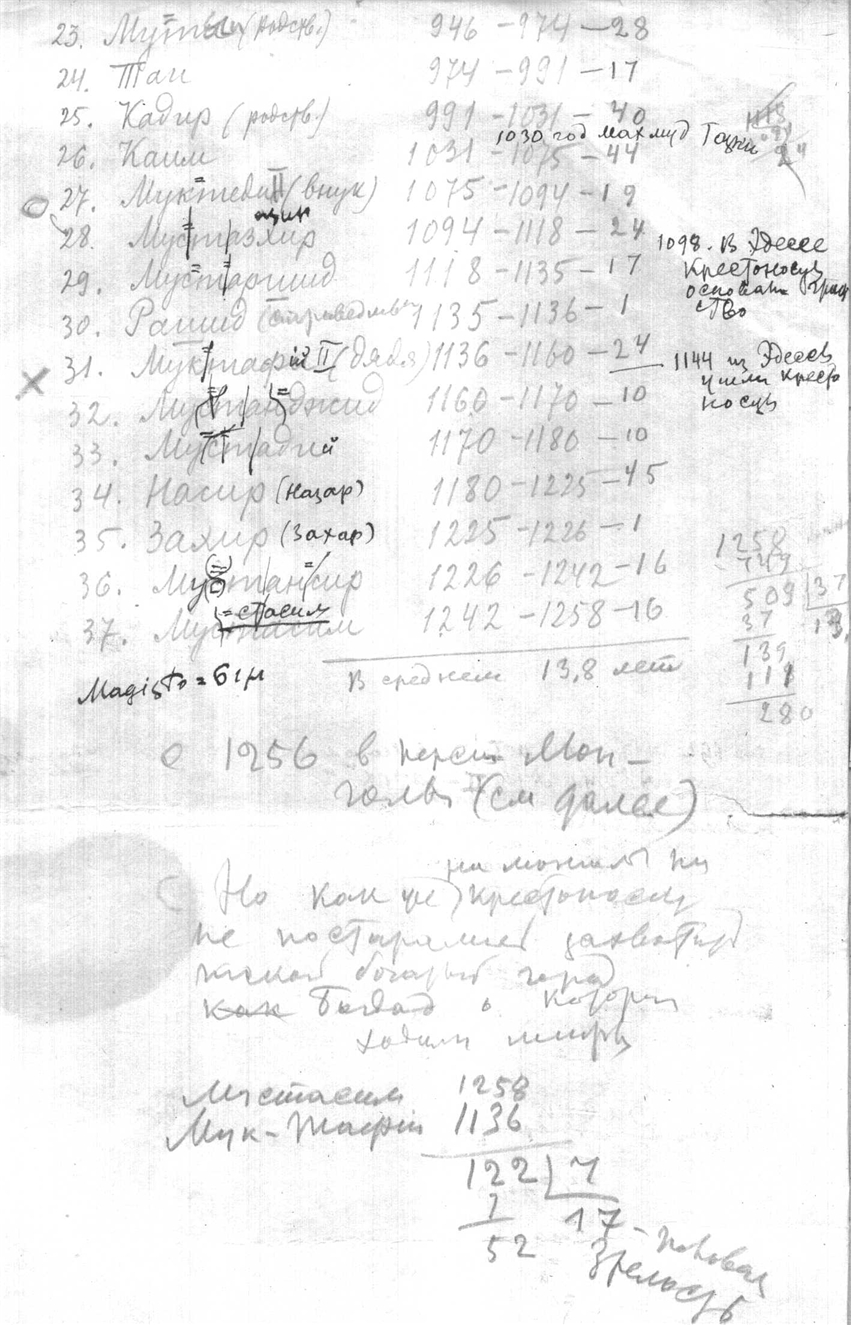 23. Мути (родств.) 946 – 974 – 28
24. Таи 974 – 991 – 17
25. Кадир (родств.) 991 – 1031 – 40
1030 год Махмуд Газни
26. Каим 1031 – 1075 – 44
27. Муктеди II (внук) 1075 – 1094 – 19
28. Мустазхир 1094 – 1118 – 24
1098. В Эдессе
крестоносцы
основали
ство
29. Мустаршид 1118 – 1135 – 17
30. Рашид (справедливый) 1135 – 1136 – 1
31. Муктафий II (дядя) 1136 – 1160 – 24
1144 из Эдессы
ушли кресто
носцы
32. Мустанджид 1160 – 1170 – 10
33. Мустадий 1170 – 1180 – 10
34. Насир (Назар) 1180 – 1225 – 45
35. Захир (Захар) 1225 – 1226 – 1
36. Мустансир 1226 – 1242 – 16
= стасим
37. Мустасим 1242 – 1258 – 16
1258
749
509 | 37
37 13,
139
111
280
В среднем 13,8 лет
С 1256 в Персии Мон–
голы (см далее)
Но как же крестоносцы
не постарались захватить
такой богатый город
как Багдад о котором
ходили мифы
Мустасим 1258
Мук-тафий 1136
122 | 7
7 17 – половая
52 зрелость